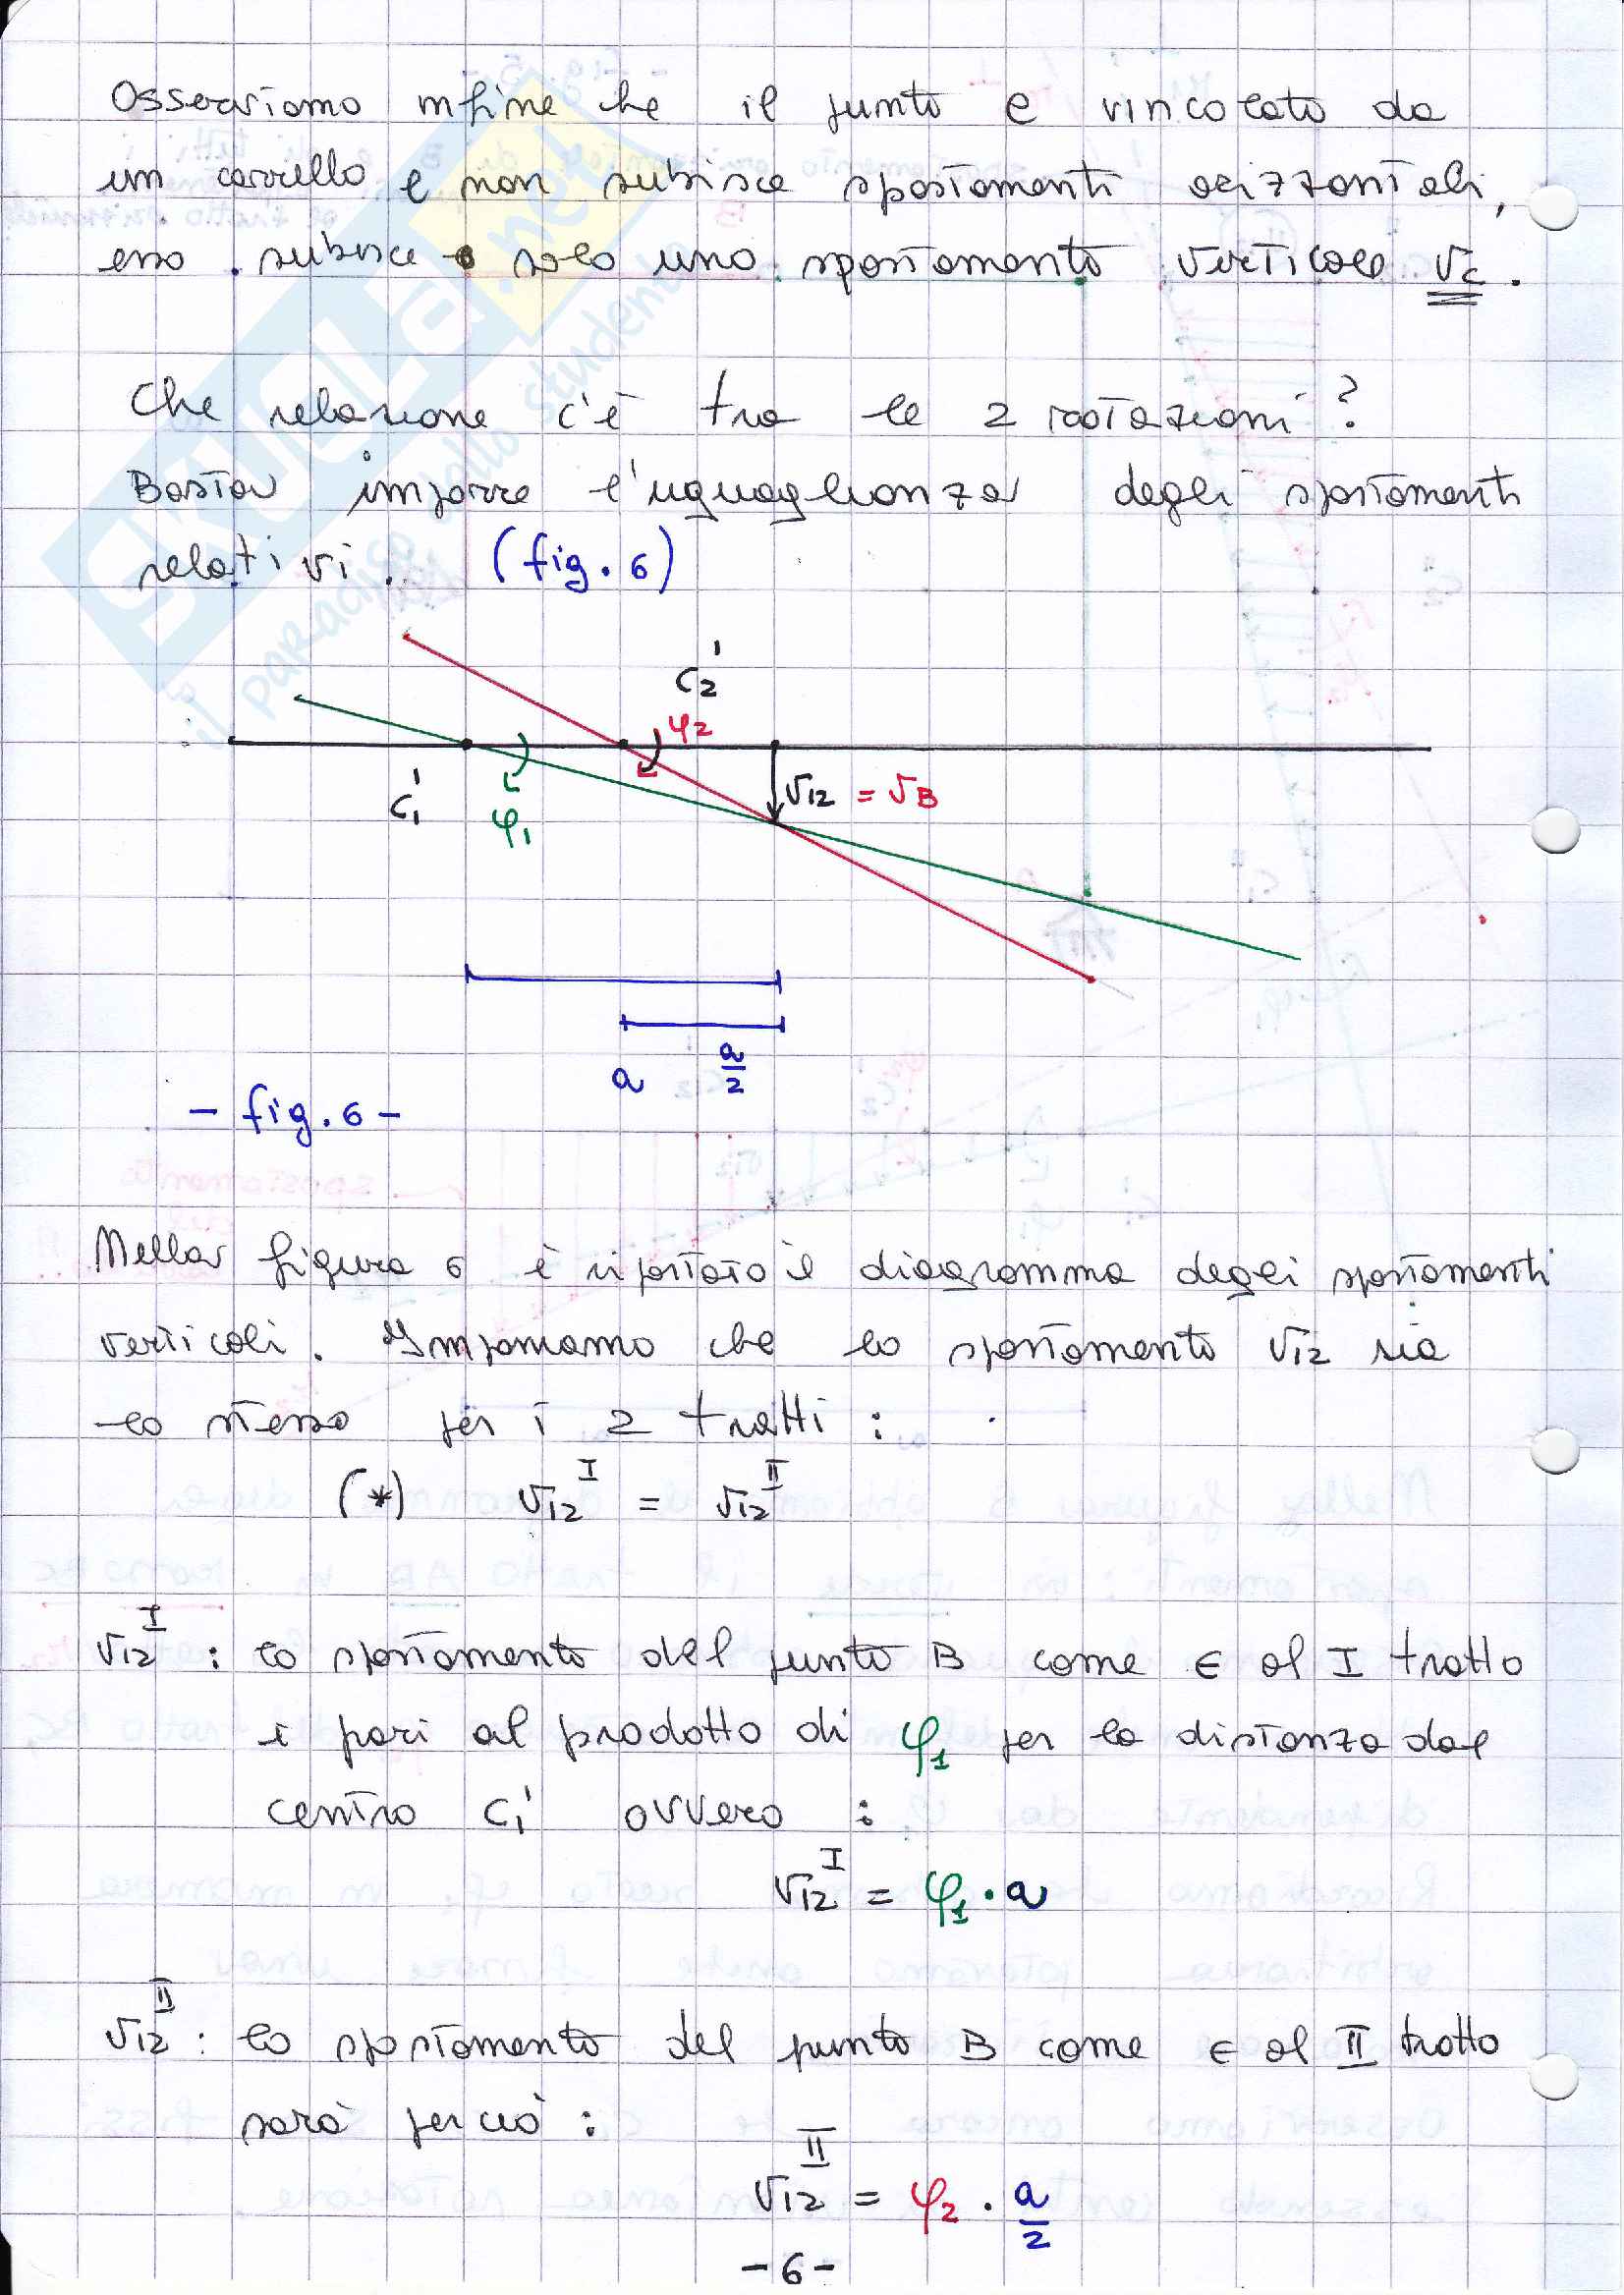 Osserviamo infine che il punto C vincolato da
un carrello e non subisce spostamenti orizzontali,
esso subisce solo uno spostamento verticale vc.
Che relazione c'è tra le 2 rotazioni?
Basta imporre l'uguaglianza degli spostamenti
relativi. (fig. 6)
C2'
φ2
C1'
φ1
v12 = vB
a
a/2
- fig. 6 -
Nella figura 6 è riportato il diagramma degli spostamenti
verticali. Imponiamo che lo spostamento v12 sia
lo stesso per i 2 tratti :
(*) v12^I = v12^II
v12^I : lo spostamento del punto B come ∈ al I tratto
è pari al prodotto di φ1 per la distanza dal
centro C1' ovvero :
v12^I = φ1 · a
v12^II : lo spostamento del punto B come ∈ al II tratto
sarà perciò :
v12^II = φ2 · a/2
- 6 -
SKUOLA.net
il paradiso dello studente